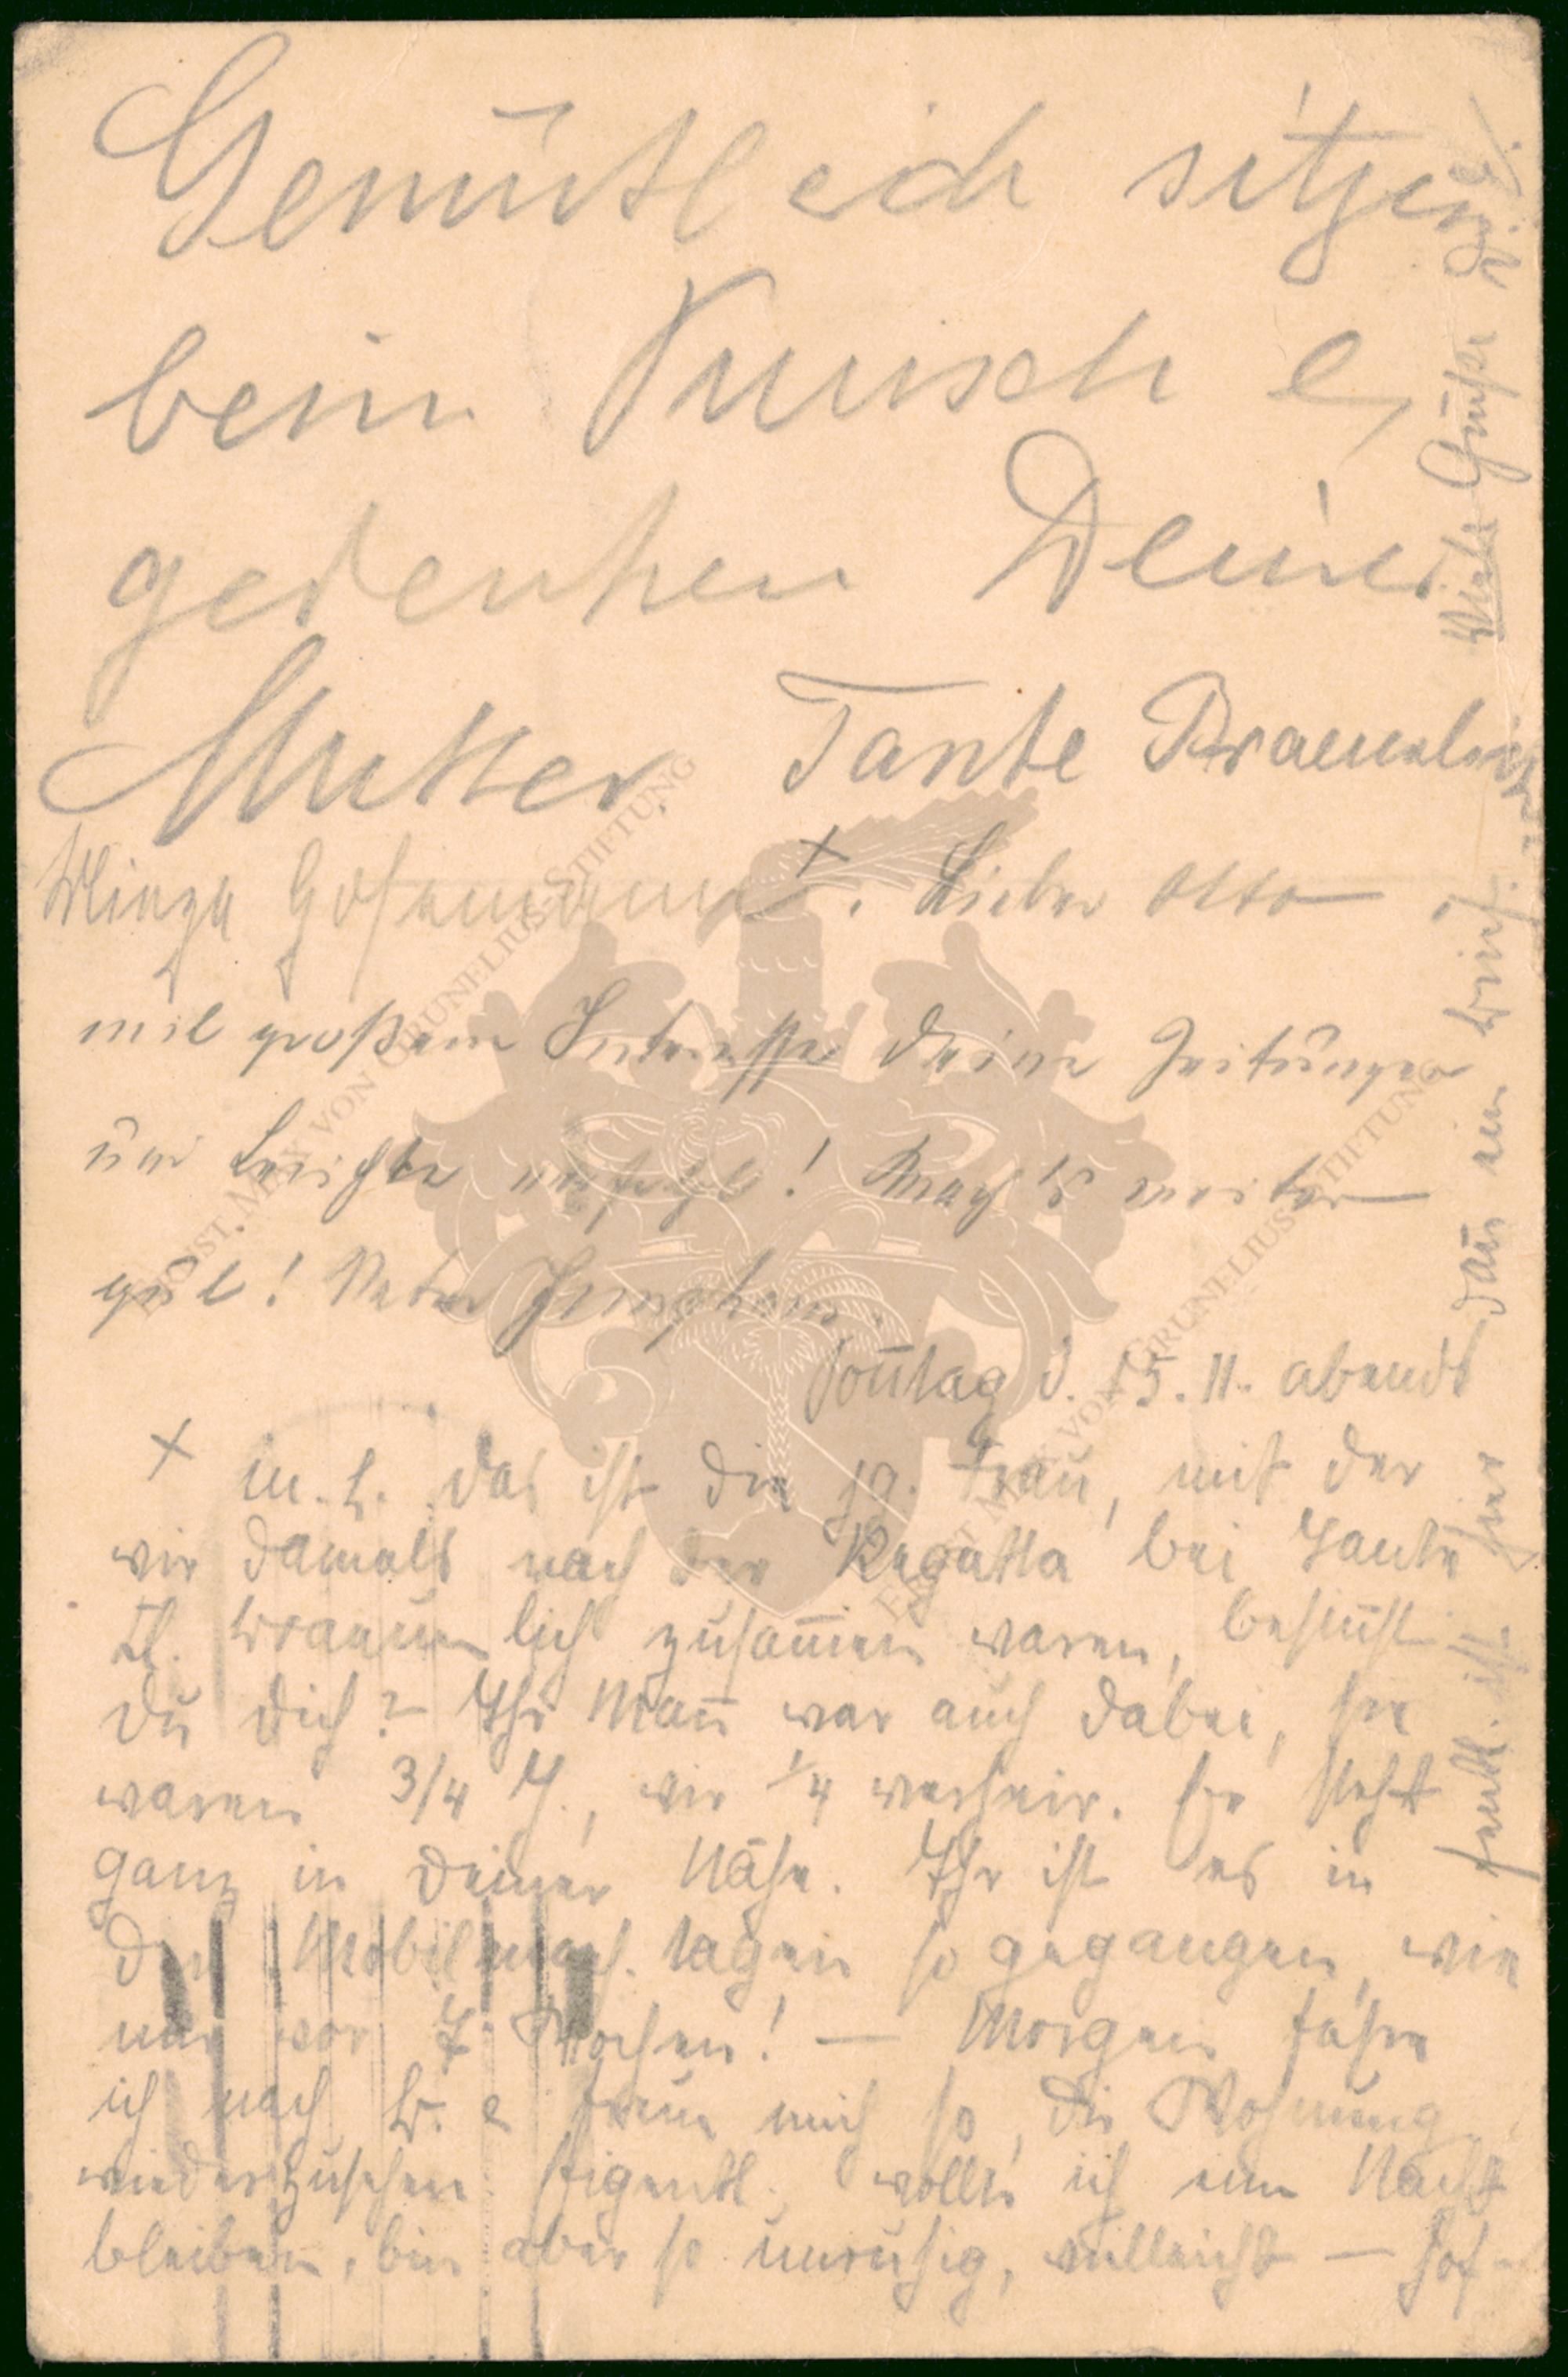 Gemütleich sitzen
beim Punsch &
gedenken Deiner
Mutter. Tante Braeunlich
Lieber Otto
mit großem Interesse Deine Zeitungen
und Berichte verfolgt! Mach's weiter
gut! Vater
Sonntag d. 15.11. abends
+ m. L. Das ist die jg. Frau, mit der
wir damals nach der Regatta bei Tante
El. Braeunlich zusam̅en waren, besin̅st
Du Dich? Ihr Man̅ war auch dabei, sie
waren 3/4 J., wir 1/4 verheir. Er steht
ganz in Deiner Nähe. Ihr ist es in
den Mobilmach. tagen so gegangen, wie
mir vor 7 Wochen! — Morgen fahre
ich nach B. & freue mich so, die Wohnung
wiederzusehen. Eigentl. wollte ich eine Nacht
bleiben, bin aber so unruhig, vielleicht — hof-
fentl. ist hier dan̅ ein Brief.
Viele Grüße
ERNST MAX VON GRUNELIUS-STIFTUNG
ERNST MAX VON GRUNELIUS-STIFTUNG